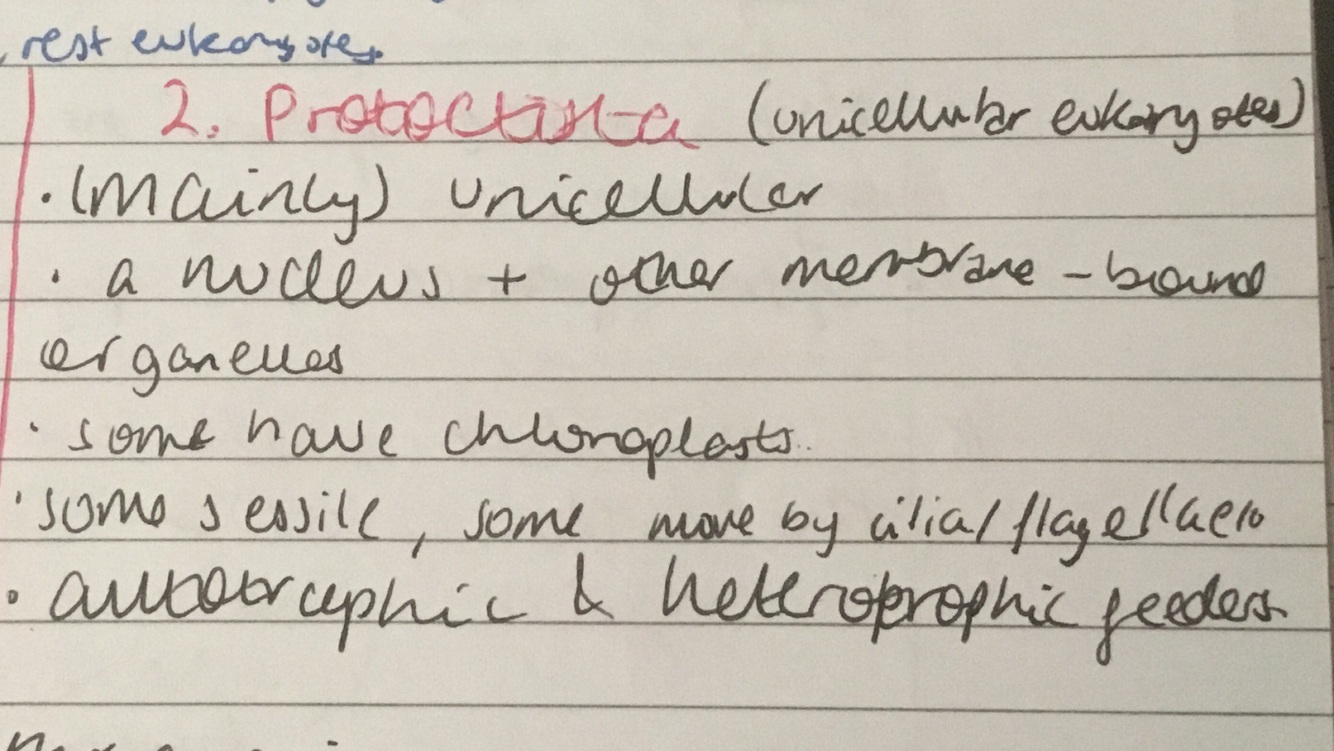 , rest eukaryotes.
2. Protoctista (unicellular eukaryotes)
· (mainly) unicellular
· a nucleus + other membrane-bound
organelles
· some have chloroplasts.
· some sessile, some move by cilia/flagella
· autotrophic & heterotrophic feeders.